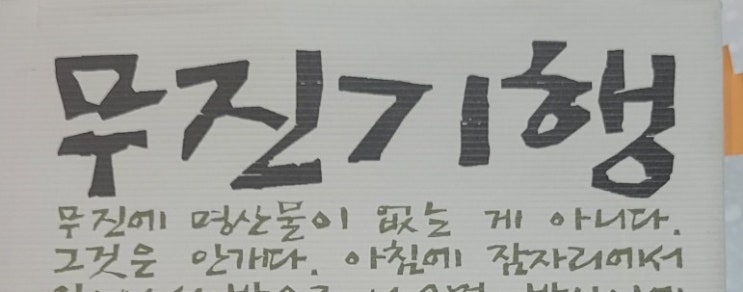 무진기행
무진에 명산물이 없는 게 아니다.
그것은 안개다. 아침에 잠자리에서